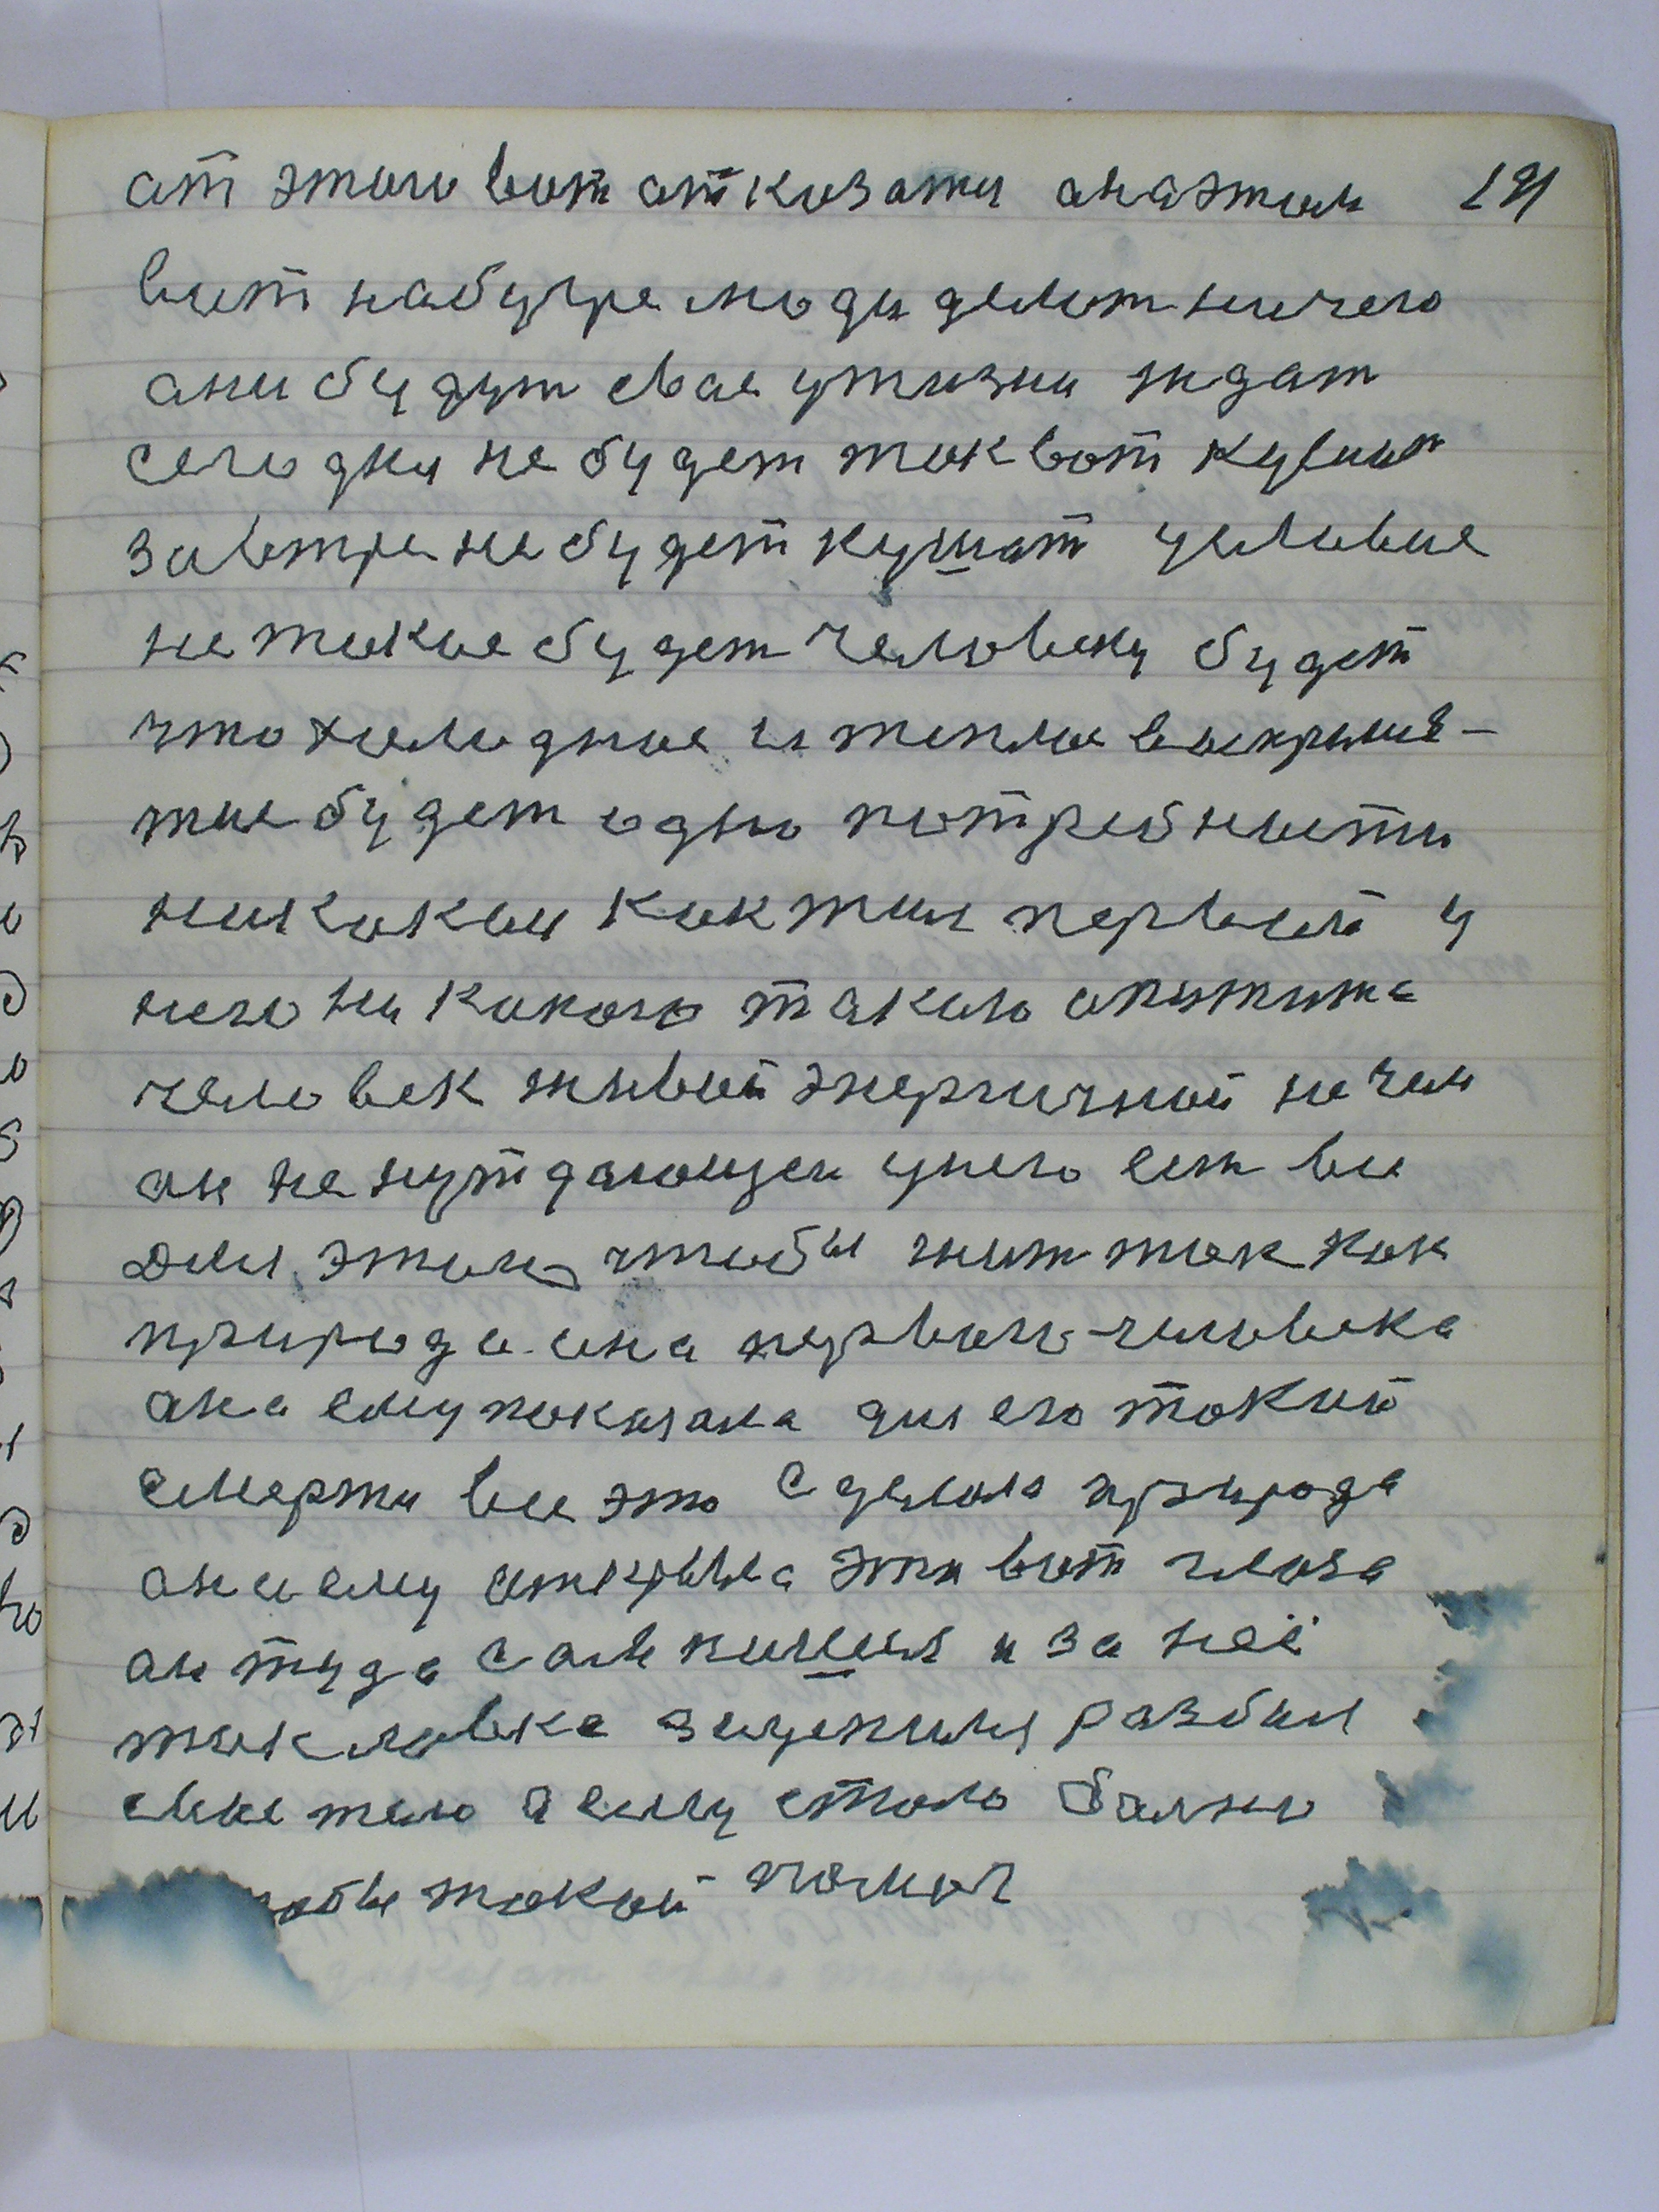 ат этого вот отказатя ана этим 191
вот набугре люди делат ничего
ани будут свае ужизни ждат
сегодня не будет так вот кушат
завтра не будет кушат условие
не такие будет человеку будет
что холодное и тепло воскрылив-
тие будет одно потребности
никакои как тии первый у
него ни какого такого апитита
человек живой энергичной не чем
ан не нуждающея унего ест все
для этого чтобы жит так как
природа она первого человека
ана ему показала для его такий
смерти все это сделала природа
ана ему открыла эти вот глаза
ан туда сам пошел и за неё
так ловка зацепился разбил
свае тело а ему стало болно
такой помог